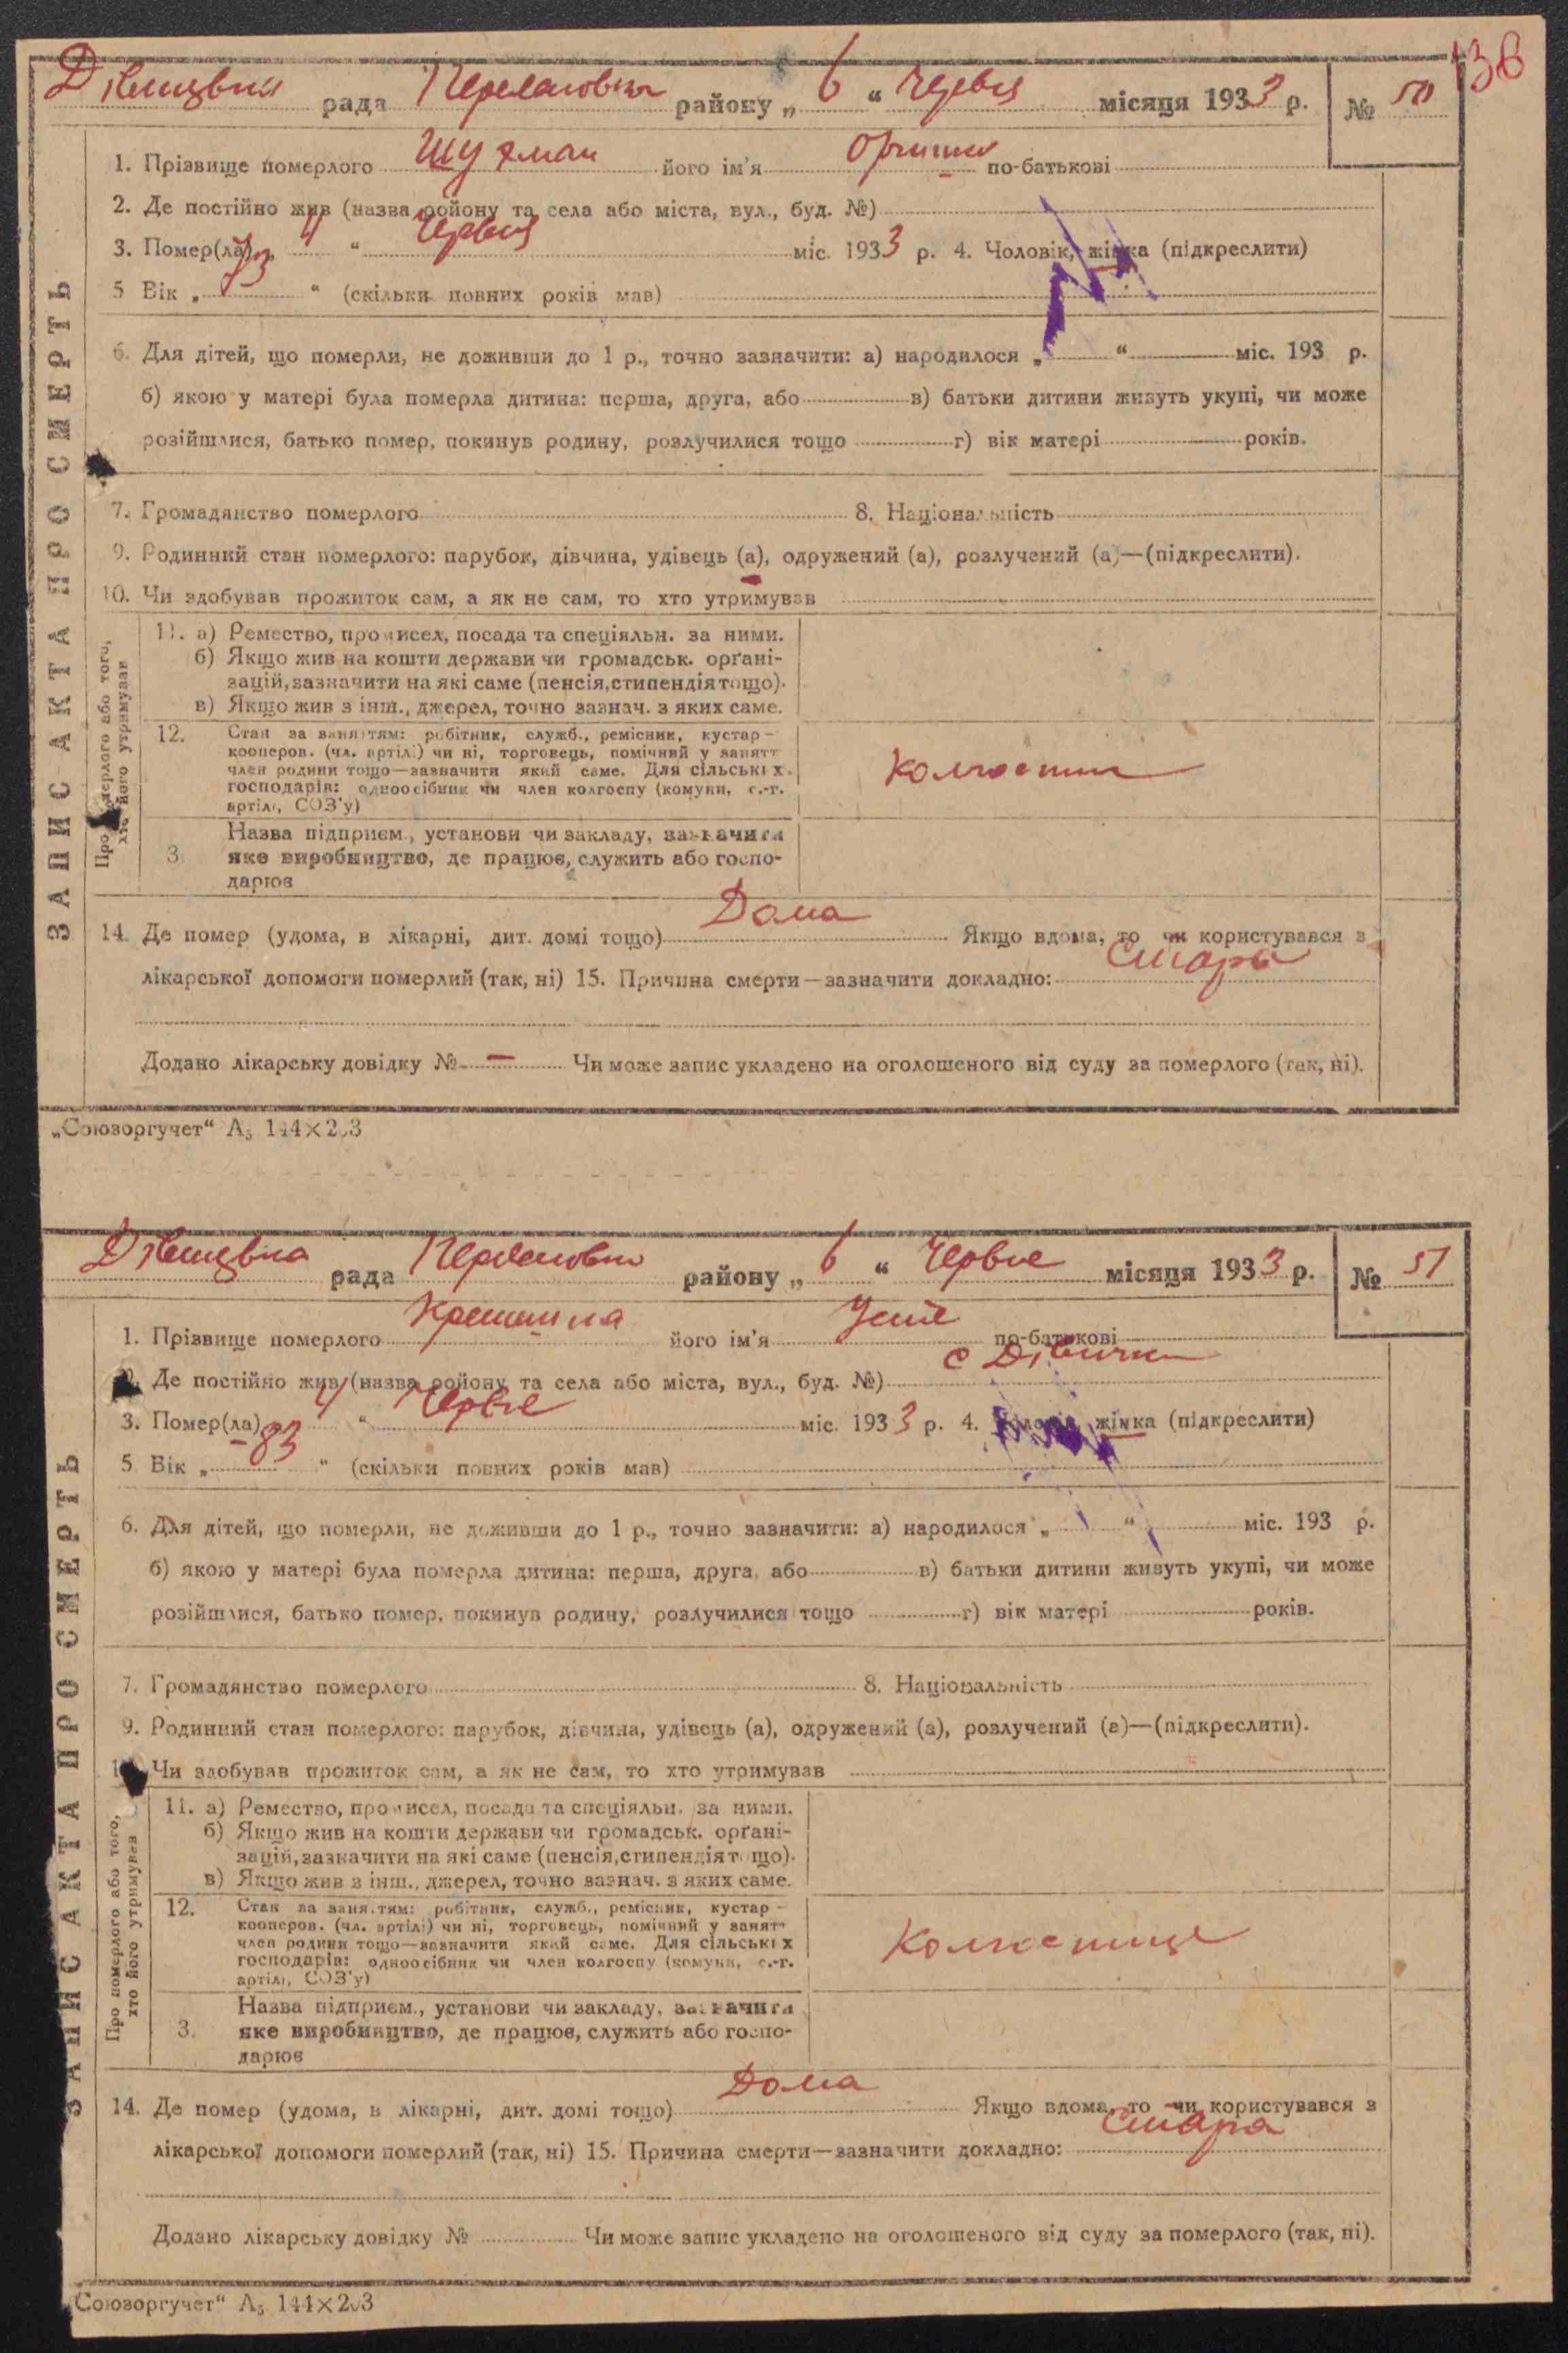 138
рада району „ 6 “ Червня місяця 1933 р. № 50
1. Прізвище померлого його ім'я по-батькові
2. Де постійно жив (назва району та села або міста, вул., буд. №)
3. Помер(ла) „ 4 “ Червня міс. 1933 р. 4. Чоловік, жінка (підкреслити)
5 Вік „ 73 “ (скільки повних років мав)
6. Для дітей, що померли, не доживши до 1 р., точно зазначити: а) народилося „ “ міс. 193 р.
б) якою у матері була померла дитина: перша, друга, або в) батьки дитини живуть укупі, чи може
розійшлися, батько помер, покинув родину, розлучилися тощо г) вік матері років.
7. Громадянство померлого 8. Національність
9. Родинний стан померлого: парубок, дівчина, удівець (а), одружений (а), розлучений (а)—(підкреслити).
10. Чи здобував прожиток сам, а як не сам, то хто утримував
ЗАПИС АКТА ПРО СМЕРТЬ
Про померлого або того,
хто його утримував
11. а) Ремество, промисел, посада та спеціяльн. за ними.
б) Якщо жив на кошти держави чи громадськ. органі-
зацій, зазначити на які саме (пенсія, стипендія тощо).
в) Якщо жив з інш., джерел, точно зазнач. з яких саме.
12. Стан за заняттям: робітник, служб., ремісник, кустар –
кооперов. (чл. артілі) чи ні, торговець, помічний у занятт
член родини тощо—зазначити який саме. Для сільських
господарів: одноосібник чи член колгоспу (комуни, с.-г.
артілі, СОЗ'у)
3 Назва підприєм., установи чи закладу, зазначити
яке виробництво, де працює, служить або госпо-
дарює
14. Де помер (удома, в лікарні, дит. домі тощо) Дома Якщо вдома, то чи користувався з
лікарської допомоги померлий (так, ні) 15. Причина смерти—зазначити докладно: Стара
Додано лікарську довідку № — Чи може запис укладено на оголошеного від суду за померлого (так, ні).
„Союзоргучет“ А₅ 144×203
рада району „ 6 “ Червня місяця 1933 р. № 51
1. Прізвище померлого його ім'я по-батькові
2. Де постійно жив (назва району та села або міста, вул., буд. №) с Дівички
3. Помер(ла) 4 “ Червня міс. 1933 р. 4. Чоловік, жінка (підкреслити)
5 Вік „ 83 “ (скільки повних років мав)
6. Для дітей, що померли, не доживши до 1 р., точно зазначити: а) народилося „ “ міс. 193 р.
б) якою у матері була померла дитина: перша, друга, або в) батьки дитини живуть укупі, чи може
розійшлися, батько помер, покинув родину, розлучилися тощо г) вік матері років.
7. Громадянство померлого 8. Національність
9. Родинний стан померлого: парубок, дівчина, удівець (а), одружений (а), розлучений (а)—(підкреслити).
Чи здобував прожиток сам, а як не сам, то хто утримував
ЗАПИС АКТА ПРО СМЕРТЬ
Про померлого або того,
хто його утримував
11. а) Ремество, промисел, посада та спеціяльн. за ними.
б) Якщо жив на кошти держави чи громадськ. органі-
зацій, зазначити на які саме (пенсія, стипендія тощо).
в) Якщо жив з інш., джерел, точно зазнач. з яких саме.
12. Стан за заняттям: робітник, служб., ремісник, кустар –
кооперов. (чл. артілі) чи ні, торговець, помічний у занятт
член родини тощо—зазначити який саме. Для сільських
господарів: одноосібник чи член колгоспу (комуни, с.-г.
артілі, СОЗ'у)
3. Назва підприєм., установи чи закладу, зазначити
яке виробництво, де працює, служить або госпо-
дарює
14. Де помер (удома, в лікарні, дит. домі тощо) Дома Якщо вдома, то чи користувався з
лікарської допомоги померлий (так, ні) 15. Причина смерти—зазначити докладно: Стара
Додано лікарську довідку № Чи може запис укладено на оголошеного від суду за померлого (так, ні).
„Союзоргучет“ А₅ 144×203